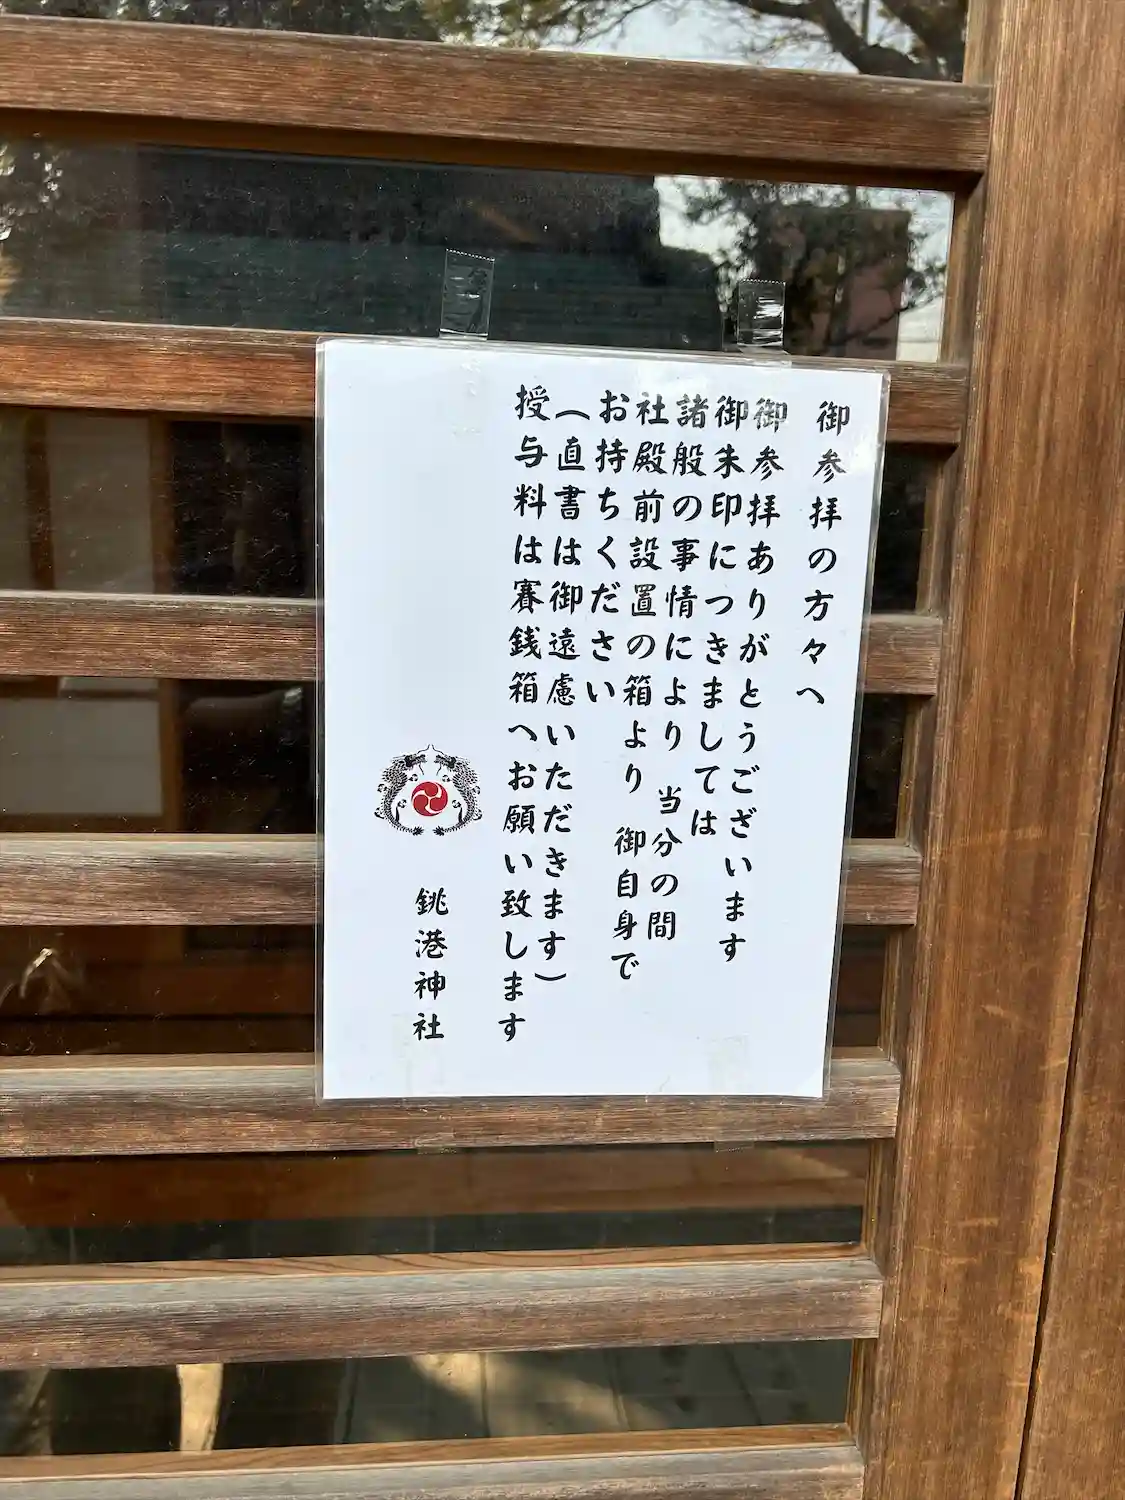 御参拝の方々へ
御参拝ありがとうございます
御朱印につきましては
諸般の事情により　当分の間
社殿前設置の箱より　御自身で
お持ちください
（直書は御遠慮いただきます）
授与料は賽銭箱へお願い致します
銚港神社